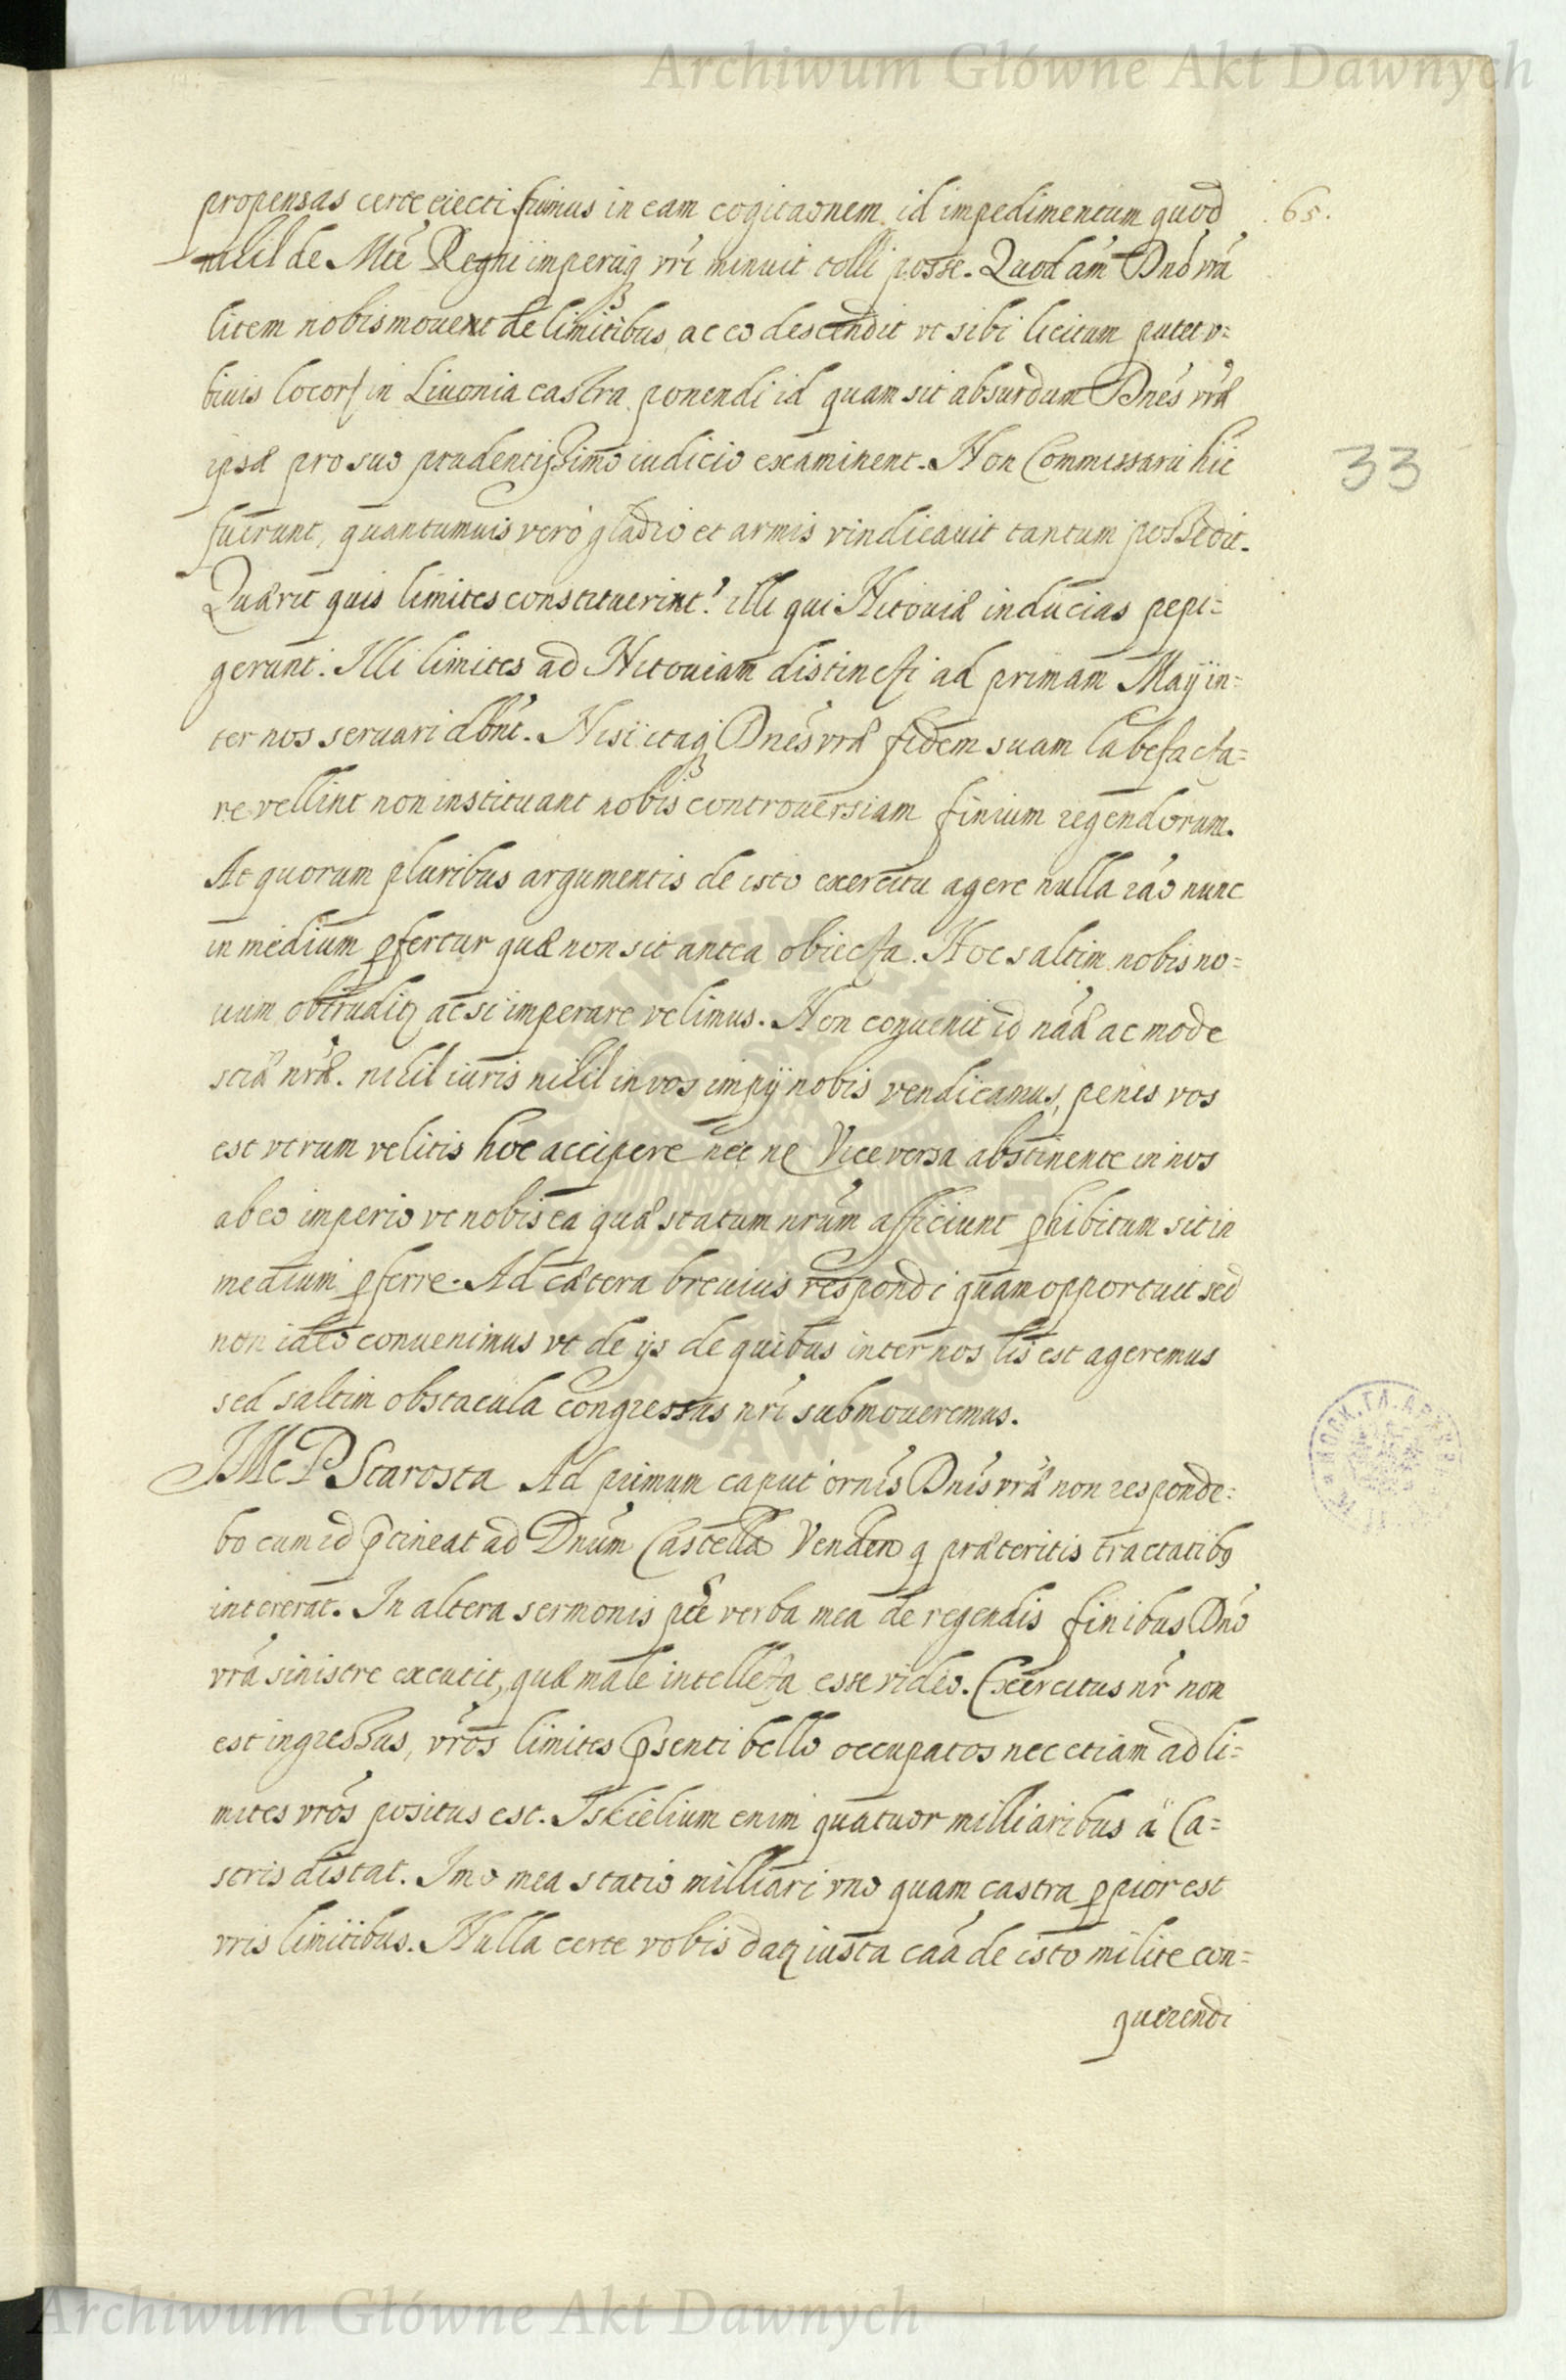 Archiwum Główne Akt Dawnych
propensas certe eiecti fuimus in eam cogitaõnem id impedimentum quod
65.
nihil de Mtẽ Regni imperiiq vrĩ minuit tolli posse. Quod aũt Dnõ vrã
litem nobis mouent de limitibus, ac eo descendit vt sibi licitum putet v=
biuis locor in Liuonia castra ponendi id quam sit absurdum Dnẽs vræ
ipsæ pro suo prudentissimo iudicio examinent. Non Commissarii hic
33
fuerunt, quantumuis vero gladio et armis vindicauit tantum possedit.
Quærit quis limites constituerint? illi qui Nitouiæ inducias pepi=
gerunt. Illi limites ad Nitouiam distincti ad primam Maÿ in=
ter nos seruari dbñt. Nisi itaq Dnẽs vræ fidem suam labefacta=
re vellint non instituant nobis controuersiam finium regendorum.
At quorum pluribus argumentis de isto exercitu agere nulla rão nunc
in medium pfertur quæ non sit antea obiecta. Hoc saltim nobis no=
uum obtruditq ac si imperare velimus. Non conuenit id nãæ ac mode
stiæ nrã. nihil iuris nihil in vos impÿ nobis vendicamus, penes vos
est vtrum velitis hoc accipere nec ne Vice versa abstinente in nos
ab eo imperio vt nobis ea quæ statum nrũm afficiunt phibitum sit in
medium pferre. Ad cætera breuius respondi quam opportuit sed
non ideo conuenimus vt de ÿs de quibus inter nos lis est ageremus
sed saltim obstacula congressus nrĩ submoueremus.
JMc P Starosta Ad primum caput ornĩs Dnĩs vræ non responde=
bo cum id ptineat ad Dnũm Castella Venden q præteritis tractatibq
intererat. In altera sermonis pte verba mea de regendis finibus Dnõ
vrã sinistre excutit, quæ male intellecta esse video. Exercitus nr̃ non
est ingressus, vrõs limites psenti bello occupatos nec etiam ad li=
mites vrõs positus est. Iskielium enim quatuor milliaribus a Ca=
stris distat. Imo mea statio milliari vno quam castra ppior est
vris limitibus. Nulla certe vobis datq iusta caã de isto milite con=
querendi
Archiwum Główne Akt Dawnych